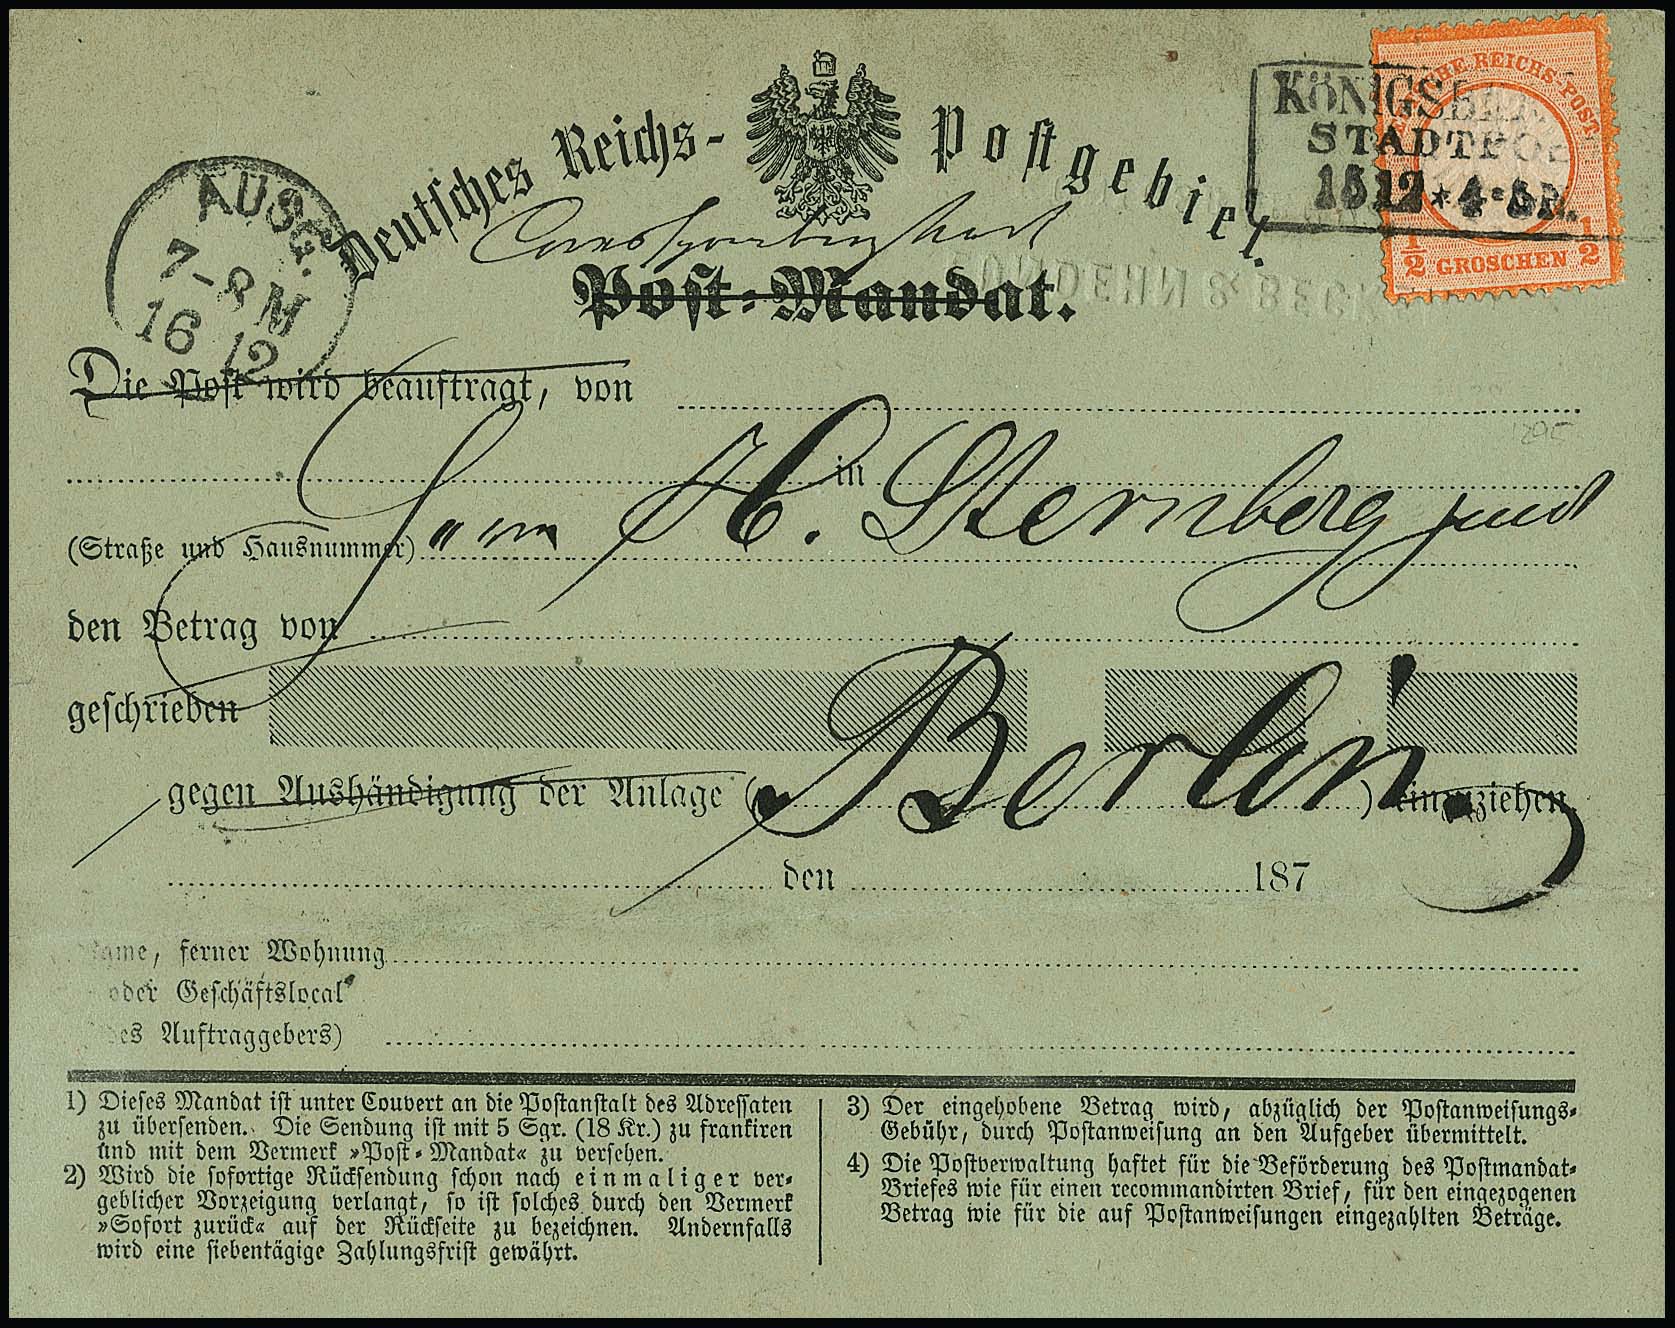 Deutsches Reichs-Postgebiet.
KÖNIGSBERG
STADTPOS
1512*4-5N.
DEUTSCHE REICHS-POST
1/2 GROSCHEN 1/2
AUSG.
7-8M
16 12
Correspondenzkart
Post-Mandat.
& BECK
Die Post wird beauftragt, von
in
Herrn H. Sternberg jun
(Straße und Hausnummer)
den Betrag von
geschrieben
Berlin.
gegen Aushändigung der Anlage ( ) einzuziehen.
den 187
Name, ferner Wohnung
oder Geschäftslocal
des Auftraggebers)
1) Dieses Mandat ist unter Couvert an die Postanstalt des Adressaten
zu übersenden. Die Sendung ist mit 5 Sgr. (18 Kr.) zu frankiren
und mit dem Vermerk »Post-Mandat« zu versehen.
2) Wird die sofortige Rücksendung schon nach einmaliger ver-
geblicher Vorzeigung verlangt, so ist solches durch den Vermerk
»Sofort zurück« auf der Rückseite zu bezeichnen. Andernfalls
wird eine siebentägige Zahlungsfrist gewährt.
3) Der eingehobene Betrag wird, abzüglich der Postanweisungs-
Gebühr, durch Postanweisung an den Aufgeber übermittelt.
4) Die Postverwaltung haftet für die Beförderung des Postmandat-
Briefes wie für einen recommandirten Brief, für den eingezogenen
Betrag wie für die auf Postanweisungen eingezahlten Beträge.